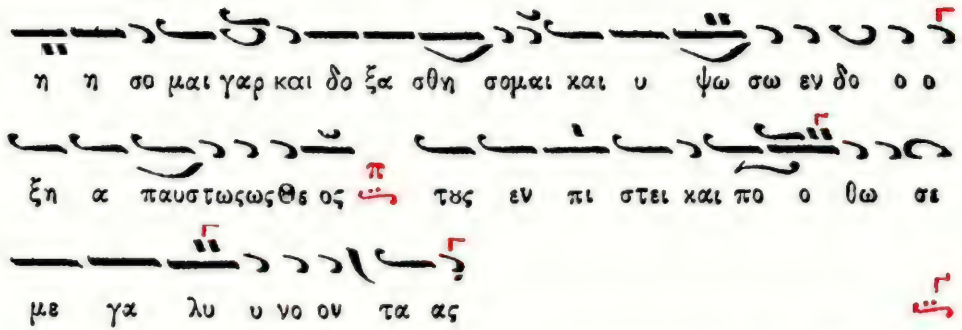 η η σο μαι γαρ και δο ξα σθη σομαι και υ ψω σω εν δο ο ο
ξη α παυστωςως Θε ος π τȣς εν πι στει και πο ο θω σε
με γα λυ υ νο ον τα ας